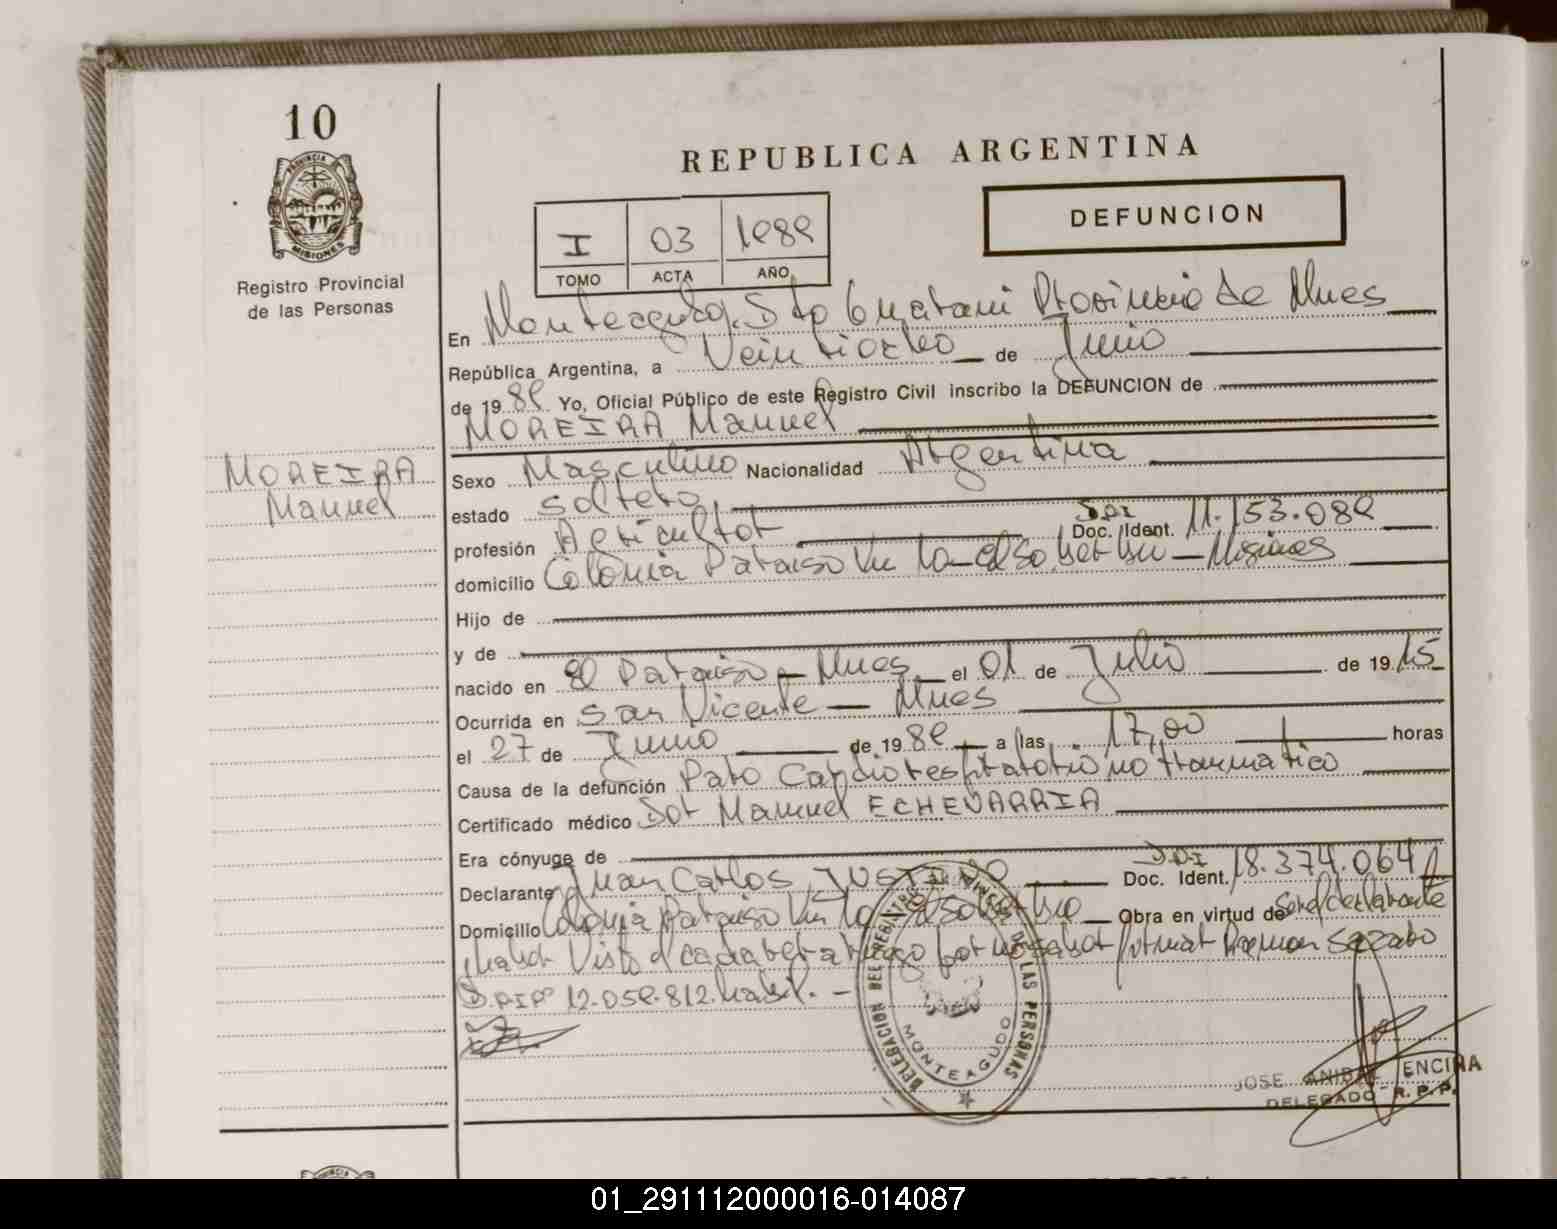 10
REPUBLICA ARGENTINA
PROVINCIA DE
MISIONES
Registro Provincial
de las Personas
I 03 1989
TOMO ACTA AÑO
DEFUNCION
En Monteagudo, Dto Guarani Provincia de Mnes
República Argentina, a Veintiocho de Junio
de 1989 Yo, Oficial Público de este Registro Civil inscribo la DEFUNCION de
MOREIRA Manuel
MOREIRA
Manuel
Sexo Masculino Nacionalidad Argentina
estado soltero
profesión Agricultor Doc. Ident. 11.153.089
domicilio Colonia Paraiso Misiones
Hijo de
y de
nacido en El Paraiso - Mnes el 01 de Julio de 1915
Ocurrida en San Vicente - Mnes
el 27 de Junio de 1989 a las 17,00 horas
Causa de la defunción Paro Cardiorespiratorio no traumatico
Certificado médico Dor Manuel ECHEVARRIA
Era cónyuge de
Declarante Juan Carlos Doc. Ident. 18.374.064
Domicilio Colonia Paraiso Obra en virtud de ser el declarante
Visto el cadaver a ruego por no saber firmar
12.059.812
DELEGACION DEL REGISTRO PROVINCIAL DE LAS PERSONAS
MONTEAGUDO
JOSE ANIBAL ENCINA
DELEGADO R.P.P.
01_291112000016-014087